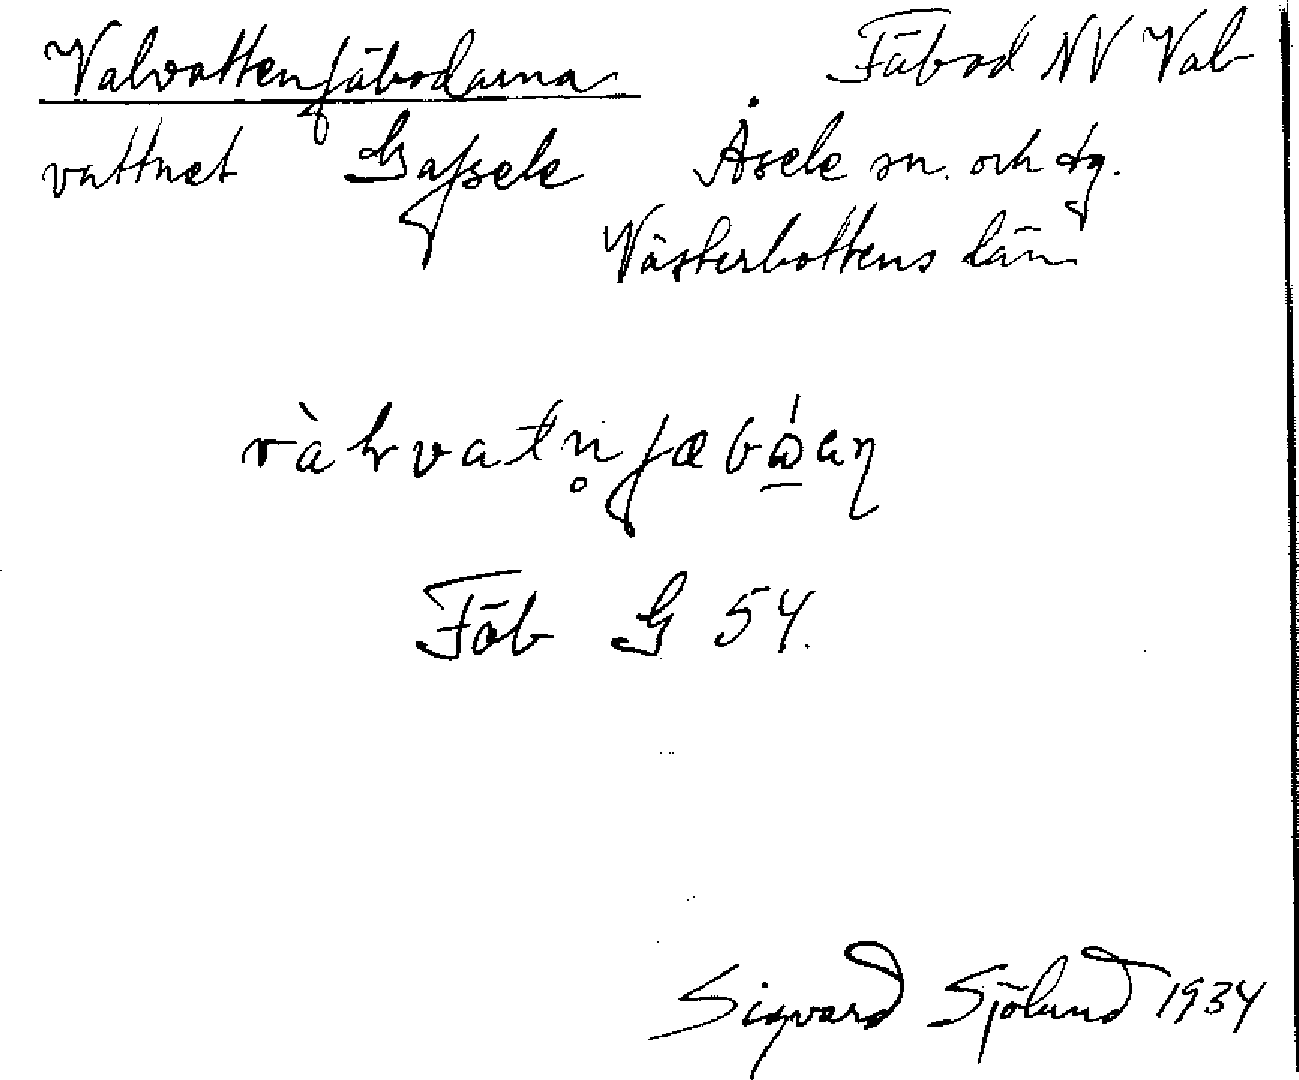 Valvattenfäbodarna Fäbod NV Val-
vattnet Gafsele Åsele sn. och tg.
Västerbottens län
Fäb G 54.
Sigvard Sjölund 1934